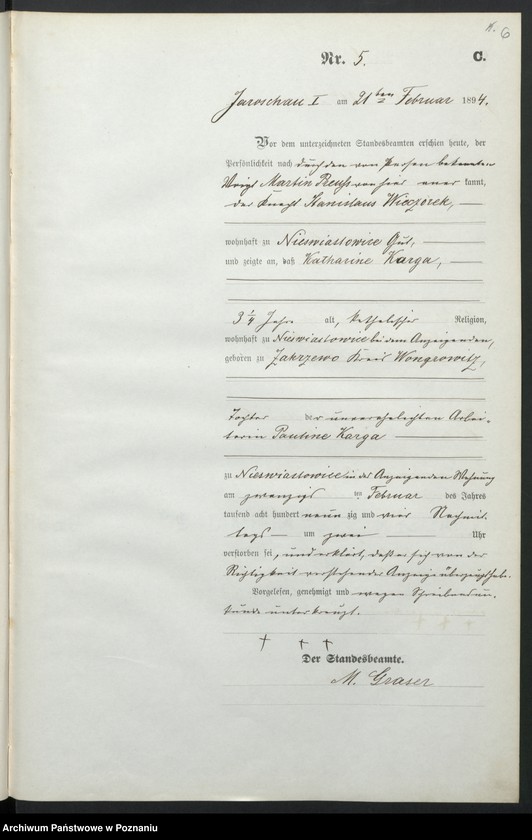 6
Nr. 5. C.
Jaroschau I am 21ten Februar 1894.
Vor dem unterzeichneten Standesbeamten erschien heute, der
Persönlichkeit nach durch den von Person bekannten
Voigt Martin Reuß von hier aner kannt,
der Knecht Stanislaus Wieczorek,
wohnhaft zu Nieswiastowice Gut,
und zeigte an, daß Katharine Karga,
3 1/4 Jahre alt, katholischer Religion,
wohnhaft zu Nieswiastowice bei dem Anzeigenden,
geboren zu Zakrzewo Kreis Wongrowitz,
Tochter der unverehelichten Arbei-
terin Pauline Karga
zu Nieswiastowice in des Anzeigenden Wohnung
am zwanzigs ten Februar des Jahres
tausend acht hundert neun zig und vier Nachmit-
tags um zwei Uhr
verstorben sei, und erklärt, daß er sich von der
Richtigkeit vorstehender Anzeige überzeugt habe.
Vorgelesen, genehmigt und wegen Schreibensun-
kunde unterkreuzt.
† † †
Der Standesbeamte.
M. Graser
Archiwum Państwowe w Poznaniu